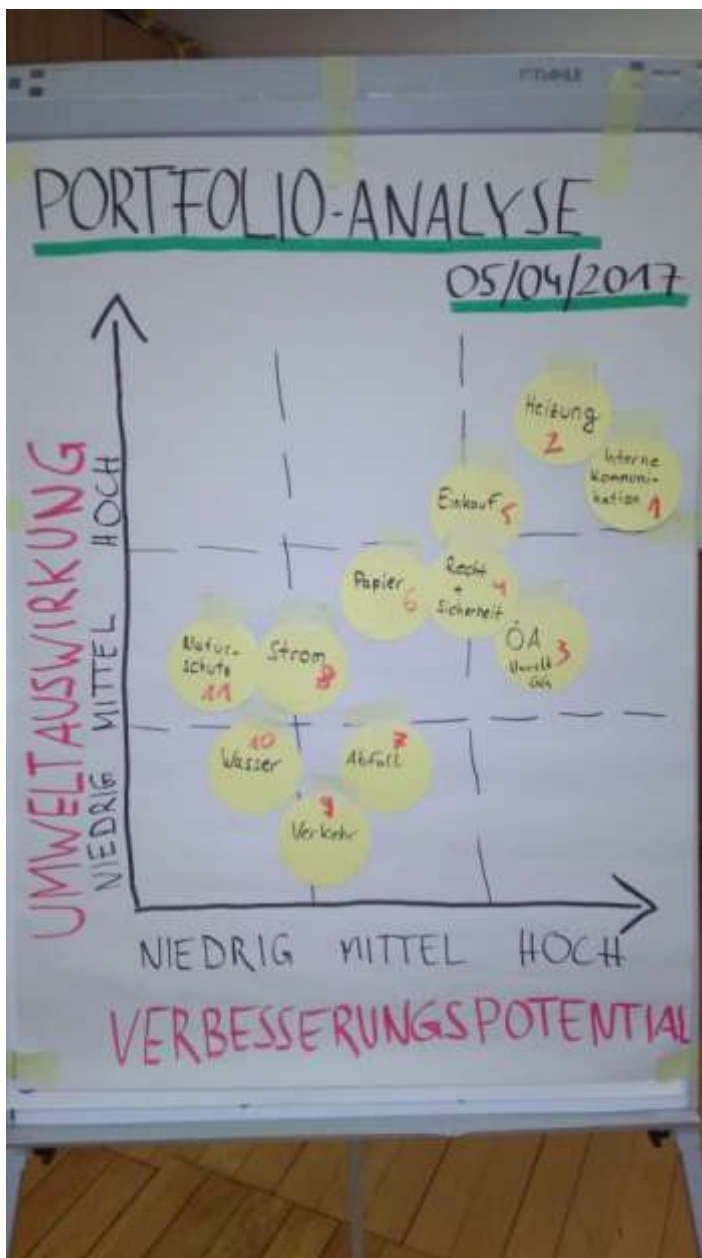 PORTFOLIO-ANALYSE
05/04/2017
UMWELTAUSWIRKUNG
HOCH
MITTEL
NIEDRIG
Heizung
2
Interne
Kommuni-
kation 1
Einkauf 5
Papier
6
Recht
+ 4
Sicherheit
ÖA
3
Natur-
schutz
11
Strom
8
10
Wasser
7
Abfall
9
Verkehr
NIEDRIG MITTEL HOCH
VERBESSERUNGSPOTENTIAL